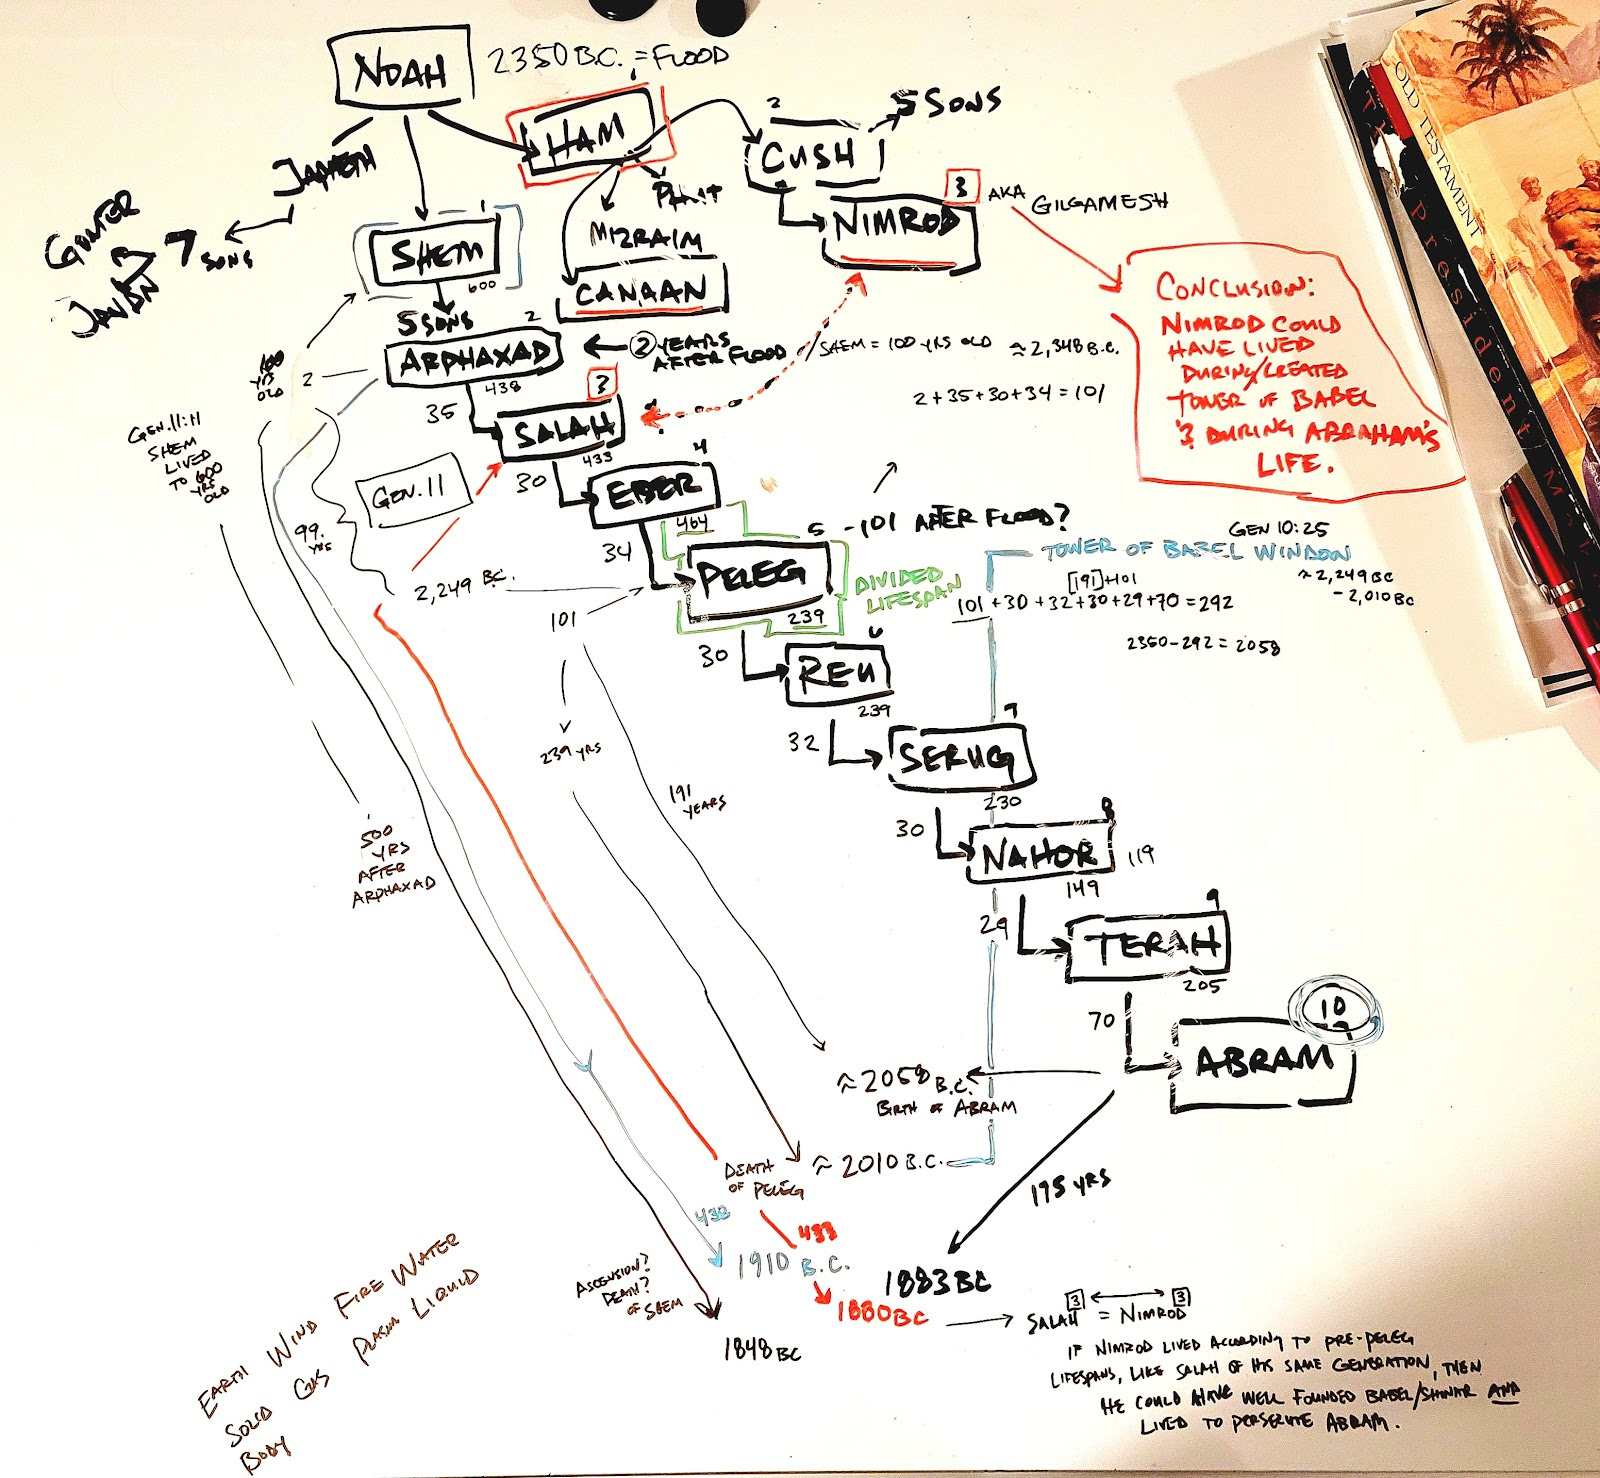 NOAH
2350 B.C. = FLOOD
HAM
2
CUSH
5 SONS
JAPHETH
GOMER
JAVAN
7 SONS
PHUT
MIZRAIM
CANAAN
3
NIMROD
AKA
GILGAMESH
1
SHEM
600
5 SONS
2
ARPHAXAD
438
2 YEARS
AFTER FLOOD
/SHEM = 100 YRS OLD ≈ 2,348 B.C.
2+35+30+34 = 101
CONCLUSION:
NIMROD COULD
HAVE LIVED
DURING/CREATED
TOWER OF BABEL
& DURING ABRAHAM'S
LIFE.
100
YRS
OLD
2
35
3
SALAH
433
GEN. 11:11
SHEM
LIVED
TO 600
YRS
OLD
GEN. 11
30
4
EBER
464
99
YRS
34
5
-101 AFTER FLOOD?
PELEG
239
DIVIDED
LIFESPAN
GEN 10:25
TOWER OF BABEL WINDOW
≈ 2,249 BC
- 2,010 BC
[191]+101
101 + 30 + 32 + 30 + 29 + 70 = 292
2350 - 292 = 2058
2,249 BC.
101
239 YRS
191
YEARS
30
6
REU
239
32
7
SERUG
230
30
8
NAHOR
119
149
29
9
TERAH
205
70
10
ABRAM
500
YRS
AFTER
ARPHAXAD
≈ 2058 B.C.
BIRTH OF ABRAM
DEATH
OF PELEG
≈ 2010 B.C.
175 YRS
438
433
1910 B.C.
1883 BC
1880 BC
ASCENSION?
DEATH?
OF SHEM
1848 BC
3 3
SALAH = NIMROD
IF NIMROD LIVED ACCORDING TO PRE-PELEG
LIFESPANS, LIKE SALAH OF HIS SAME GENERATION, THEN
HE COULD HAVE WELL FOUNDED BABEL/SHINAR AND
LIVED TO PERSECUTE ABRAM.
EARTH WIND FIRE WATER
SOLID GAS PLASMA LIQUID
BODY
OLD TESTAMENT
President